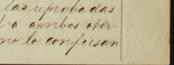 las aprobadas
a ambos
no lo confiesan